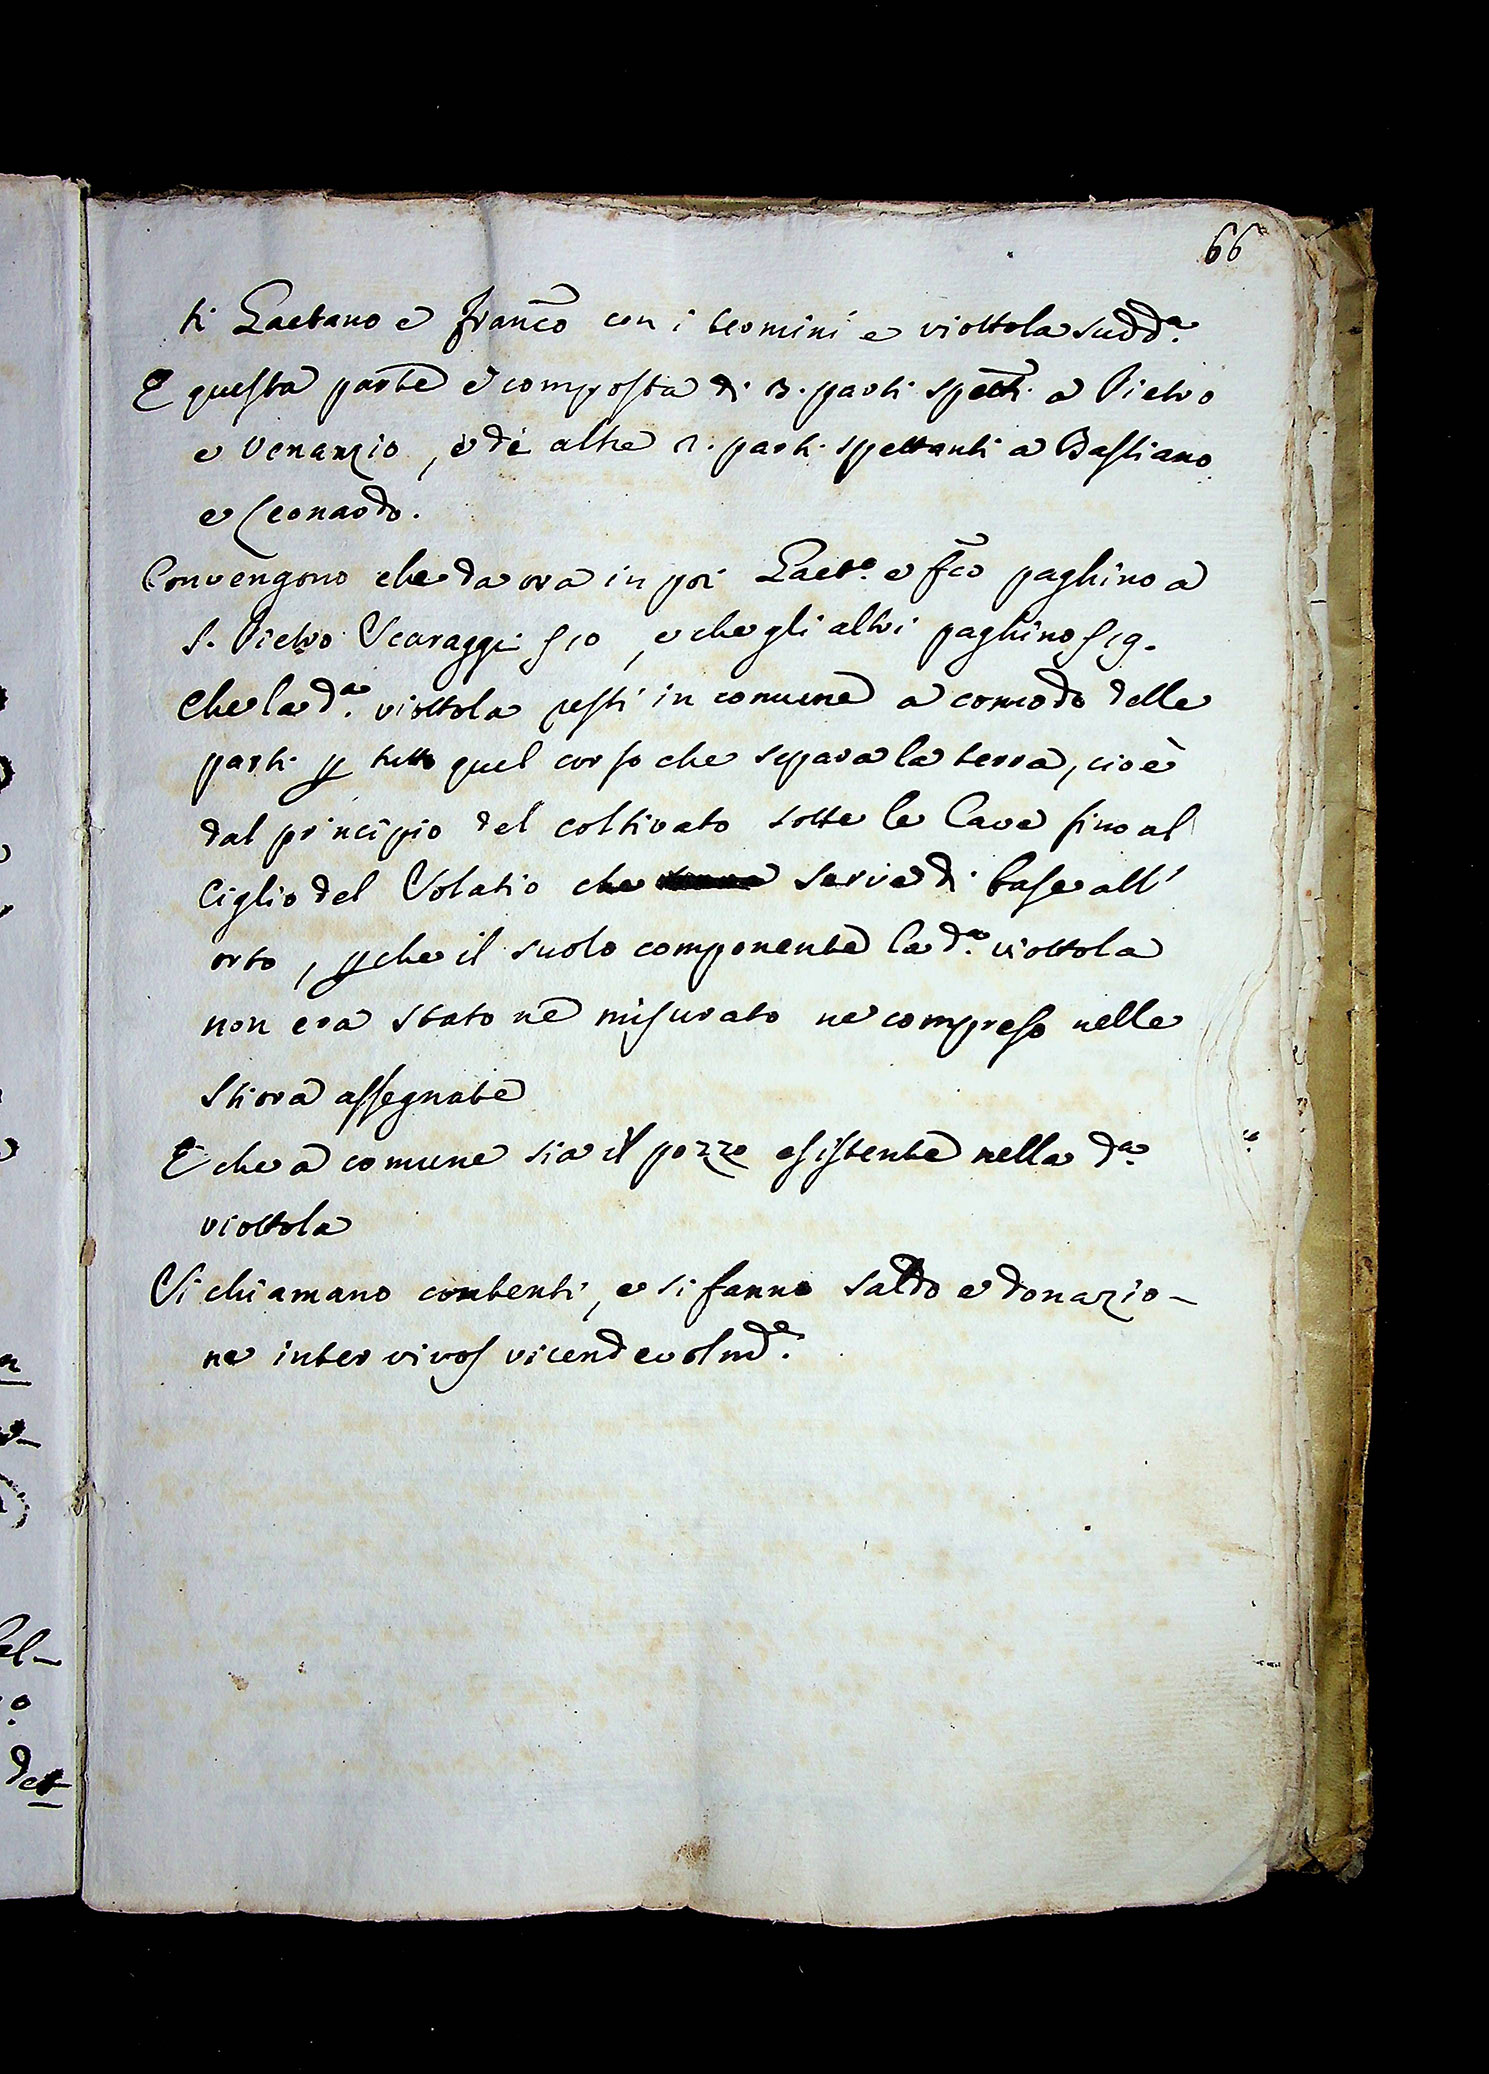 66
ti Gaetano e Franco con i termini e viottola sudda.
E questa parte è composta di 3. parti spetti. a Pietro
e Venanzio, e di altre 2. parti spettanti a Bastiano
e Leonardo.
Convengono che da ora in poi Gaeto. e Fco paghino a
S. Pietro Scaraggi f 10, e che gli altri paghino f 19.
Che la da. viottola resti in comune a comodo delle
parti p tutto quel corso che separa la terra, cioè
dal principio del coltivato sotto le Cave fino al
Ciglio del Solatio che serve di base all'
orto, pche il suolo componente la da. viottola
non era stato ne misurato ne compreso nelle
Stiora assegnate
E che a comune sia il pozzo esistente nella da.
viottola
Si chiamano contenti, e si fanno saldo e donazio-
ne inter vivos vicendevolmde.